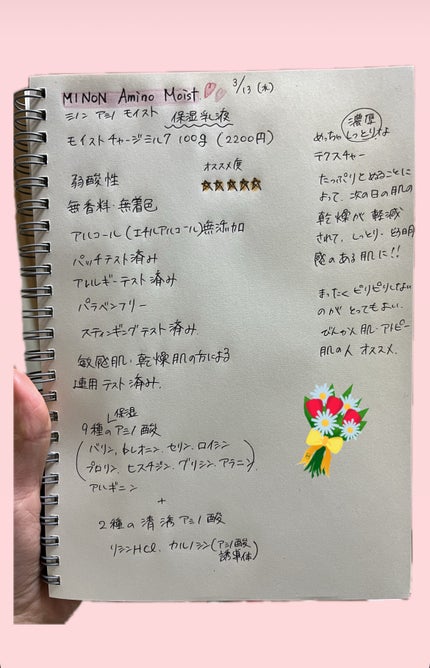 MINON Amino Moist 3/13 (水)
ミノン アミノ モイスト 保湿乳液
モイストチャージミルク 100g (2200円)
オススメ度
弱酸性
無香料・無着色
アルコール(エチルアルコール)無添加
パッチテスト済み
アレルギーテスト済み
パラベンフリー
スティンギングテスト済み.
敏感肌・乾燥肌の方による
連用テスト済み.
保湿
9種のアミノ酸
(バリン、トレオニン、セリン、ロイシン
プロリン、ヒスチジン、グリシン、アラニン、
アルギニン)
+
2種の清透アミノ酸
リシンHCl、カルノシン(アミノ酸
誘導体)
濃厚
めっちゃしっとりな
テクスチャー
たっぷりとぬることに
よって、次の日の肌の
乾燥が軽減
されて、しっとり・透明
感のある肌に!!
まったくピリピリしない
のがとってもよい.
びんかん肌・アトピー
肌の人オススメ.